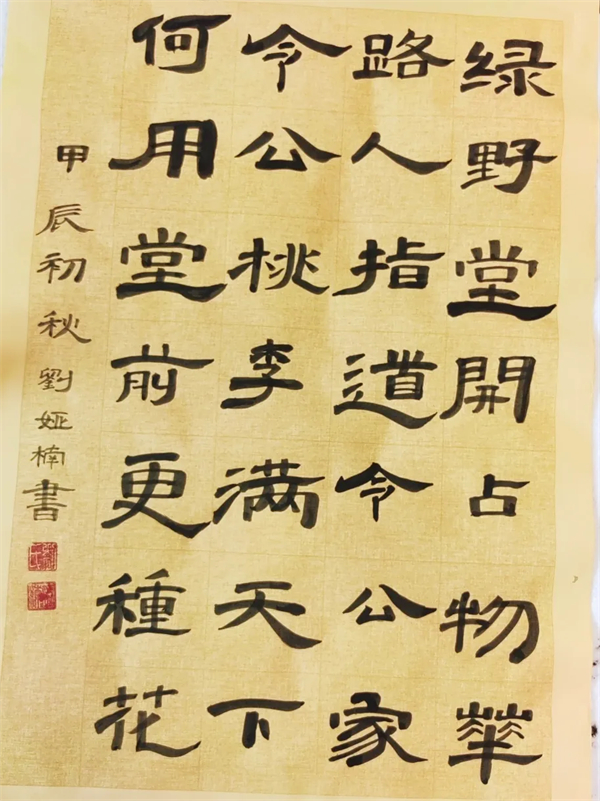 绿野堂開占物華
路人指道令公家
令公桃李满天下
何用堂前更種花
甲辰初秋劉娅楠書